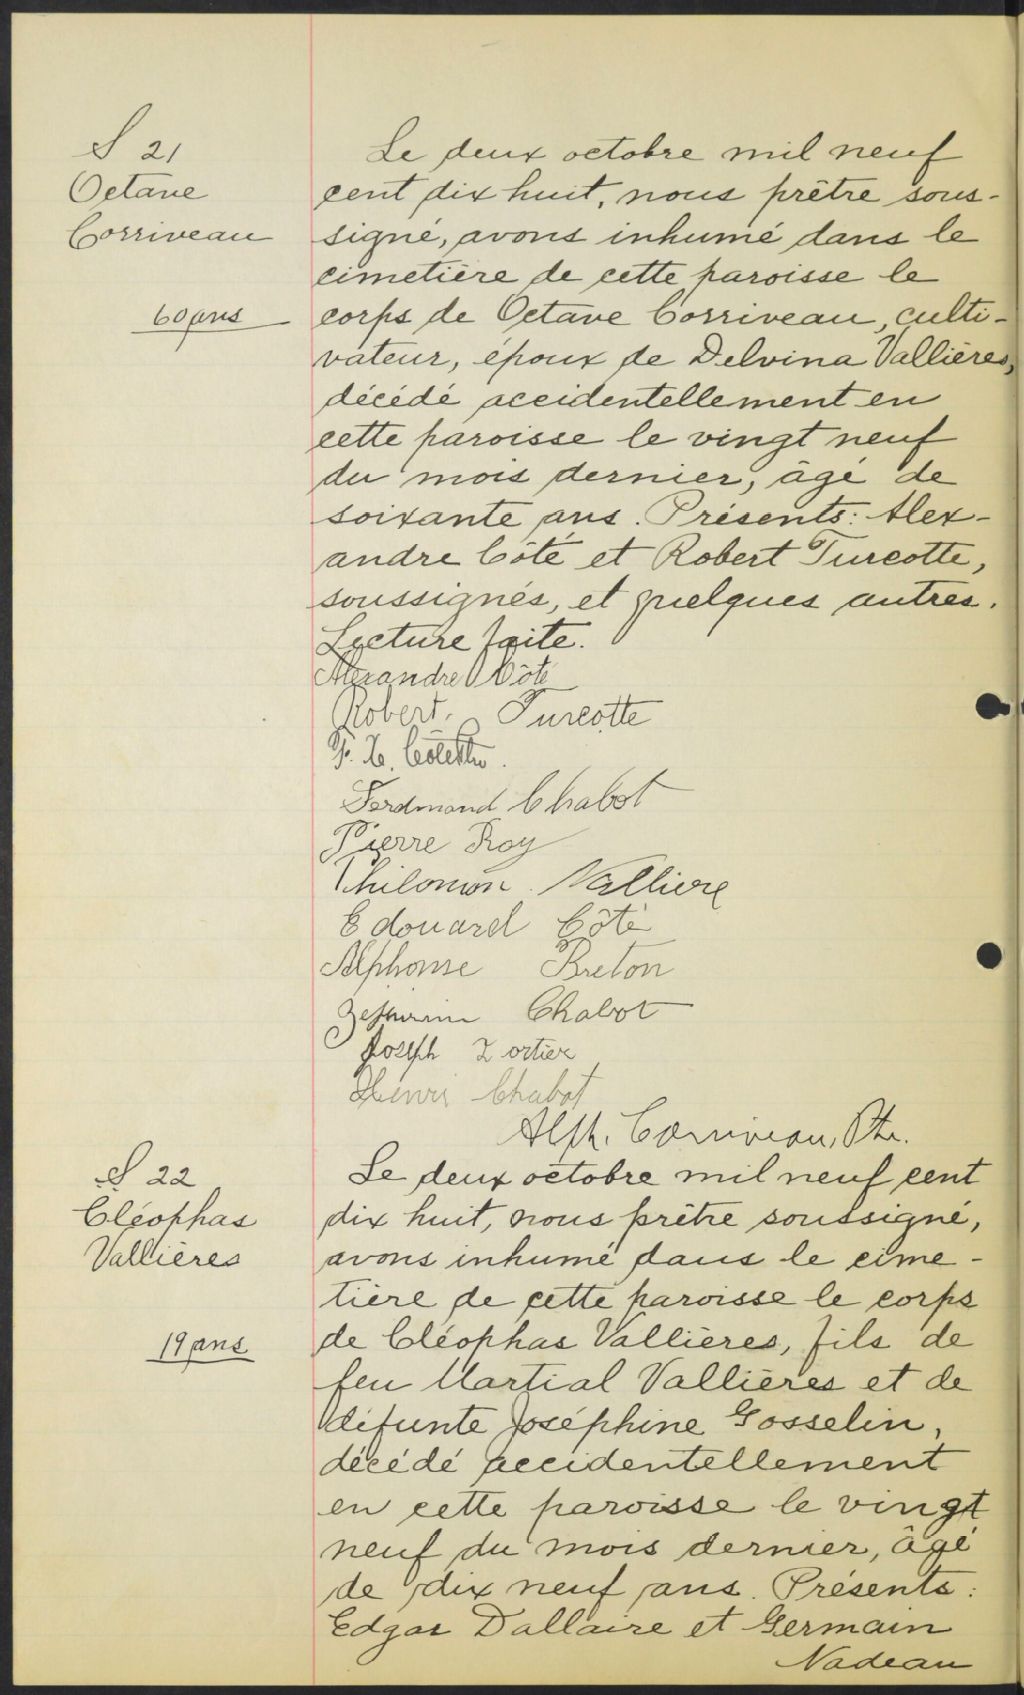 S 21
Octave
Corriveau
60 ans
Le deux octobre mil neuf
cent dix huit, nous prêtre sous-
signé, avons inhumé dans le
cimetière de cette paroisse le
corps de Octave Corriveau, culti-
vateur, époux de Delvina Vallières,
décédé accidentellement en
cette paroisse le vingt neuf
du mois dernier, âgé de
soixante ans. Présents: Alex-
andre Côté et Robert Turcotte,
soussignés, et quelques autres.
Lecture faite.
Alexandre Côté
Robert Turcotte
F. X.
Ferdinand Chabot
Pierre Roy
Philomon Valliere
Edouard Côté
Alphonse Breton
Chabot
Joseph
Henri Chabot
Alph. Corriveau, Ptr.
S 22
Cléophas
Vallières
19 ans
Le deux octobre mil neuf cent
dix huit, nous prêtre soussigné,
avons inhumé dans le cime-
tière de cette paroisse le corps
de Cléophas Vallières, fils de
feu Martial Vallières et de
défunte Joséphine Gosselin,
décédé accidentellement
en cette paroisse le vingt
neuf du mois dernier, âgé
de dix neuf ans. Présents:
Edgar Dallaire et Germain
Nadeau